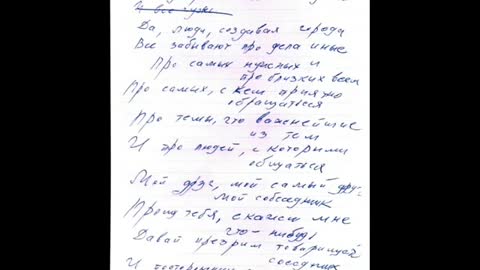 И все чуже
Да, люди, создавая города
Все забывают про дела иные
Про самых нужных и
про близких всем
Про самых, с кем приятно
обращаться
Про темы, что важнейшие
из тем
И про людей, с которыми
общаться
Мой друг, мой самый друг
Мой собеседник
Прошу тебя, скажи мне
что-нибудь
Давай презрим товарищей
соседних
И